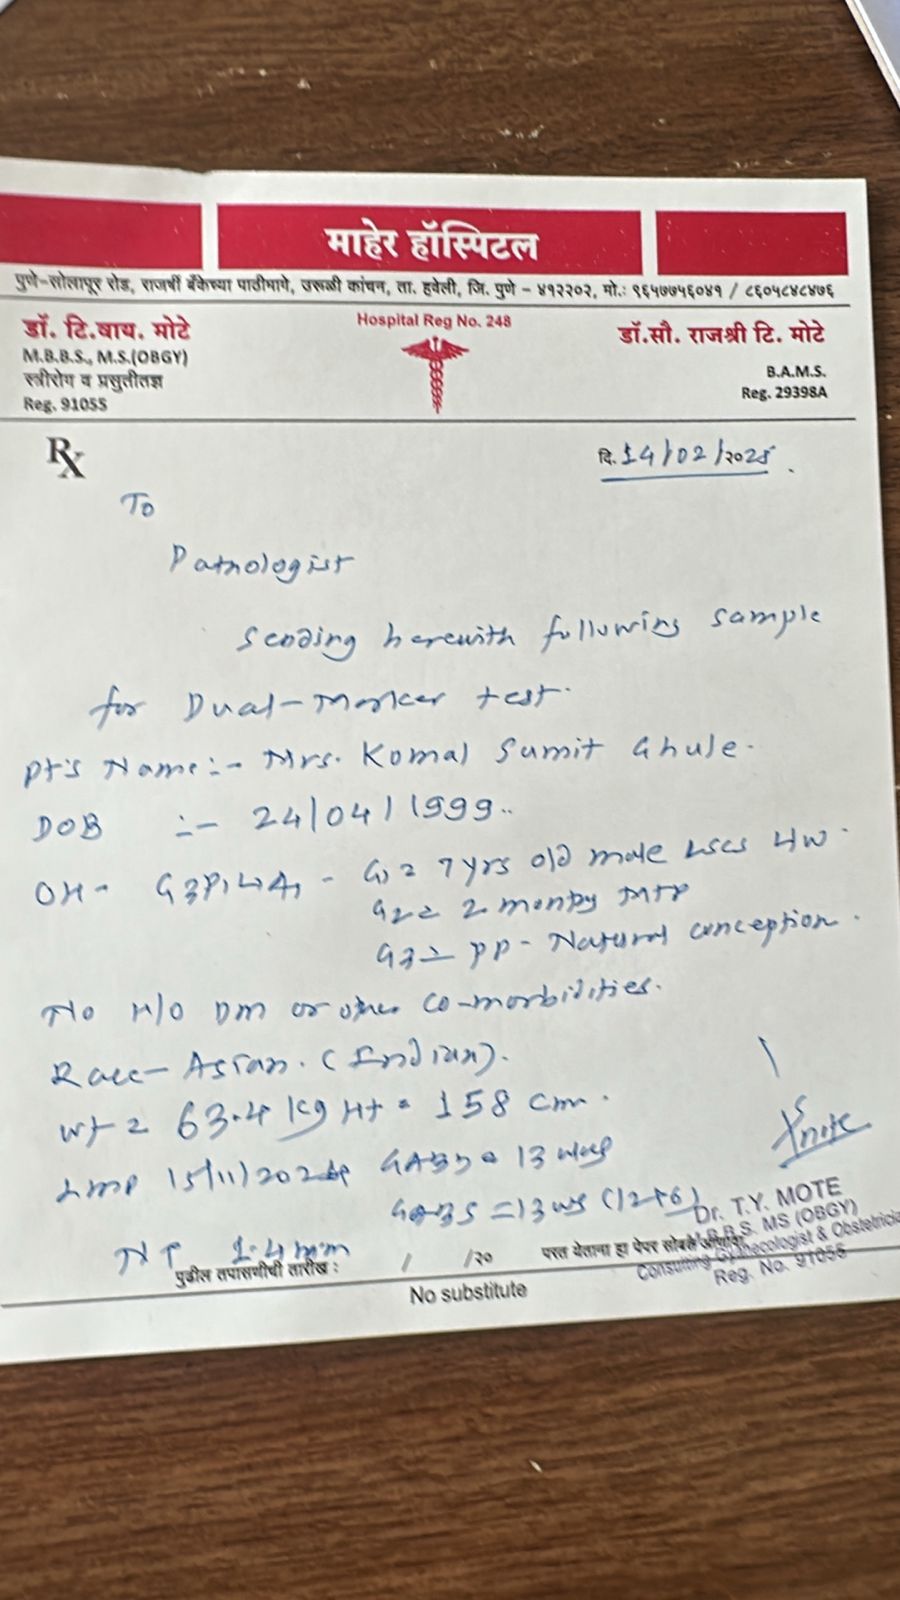 माहेर हॉस्पिटल
पुणे-सोलापूर रोड, राजर्षी बँकेच्या पाठीमागे, उरूळी कांचन, ता. हवेली, जि. पुणे - ४१२२०२, मो.: ९६५७७५६०४१ / ८६०५८४८४७६
डॉ. टि.वाय. मोटे
M.B.B.S., M.S.(OBGY)
स्त्रीरोग व प्रसुतीतज्ञ
Reg. 91055
Hospital Reg No. 248
डॉ.सौ. राजश्री टि. मोटे
B.A.M.S.
Reg. 29398A
Rx
दि. 14/02/२०25
To
Pathologist
Sending herewith following sample
for Dual-Marker test.
Pt's Name:- Mrs. Komal Sumit Ghule.
DOB :- 24/04/1999..
OH- G3P1L1A1 - G1= 7yrs old male LSCS
G2= 2 month MTP
G3= pp - Natural conception.
No H/O DM or other co-morbidities.
Race- Asian. (Indian).
Wt = 63.4 kg Ht = 158 cm.
LMP 15/11/2024 = 13
= 13 (12+6)
NT 1.4mm
पुढील तपासणीची तारीख : / /२०
परत येताना हा पेपर सोबत आणावा
No substitute
Dr. T.Y. MOTE
M.B.B.S. MS (OBGY)
Consulting Gynecologist & Obstetrician
Reg. No. 91055